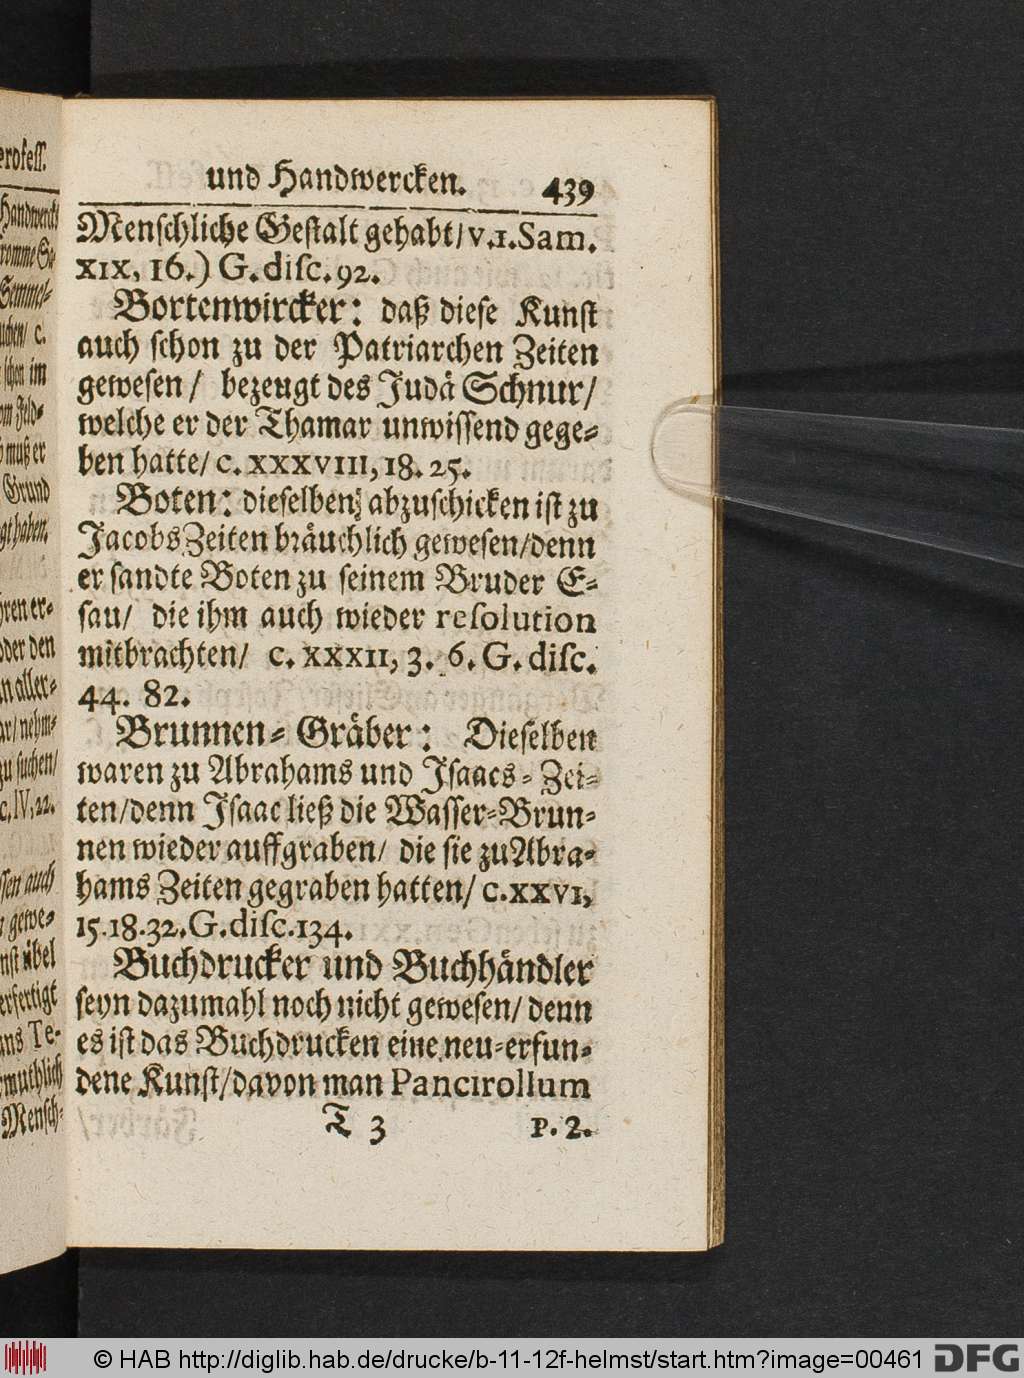 und Handwercken. 439
Menschliche Gestalt gehabt/ v. 1. Sam.
XIX, 16.) G. disc. 92.
Bortenwircker: daß diese Kunst
auch schon zu der Patriarchen Zeiten
gewesen / bezeugt des Judä Schnur/
welche er der Thamar unwissend gege-
ben hatte/ c. XXXVIII, 18. 25.
Boten: dieselben abzuschicken ist zu
Jacobs Zeiten bräuchlich gewesen/denn
er sandte Boten zu seinem Bruder E-
sau/ die ihm auch wieder resolution
mitbrachten/ c. XXXII, 3. 6. G. disc.
44. 82.
Brunnen-Gräber: Dieselben
waren zu Abrahams und Isaacs-Zei-
ten/denn Isaac ließ die Wasser-Brun-
nen wieder auffgraben/ die sie zu Abra-
hams Zeiten gegraben hatten/ c. XXVI,
15. 18. 32. G. disc. 134.
Buchdrucker und Buchhändler
seyn dazumahl noch nicht gewesen/ denn
es ist das Buchdrucken eine neu-erfun-
dene Kunst/davon man Pancirollum
T 3 P. 2.
© HAB http://diglib.hab.de/drucke/b-11-12f-helmst/start.htm?image=00461 DFG